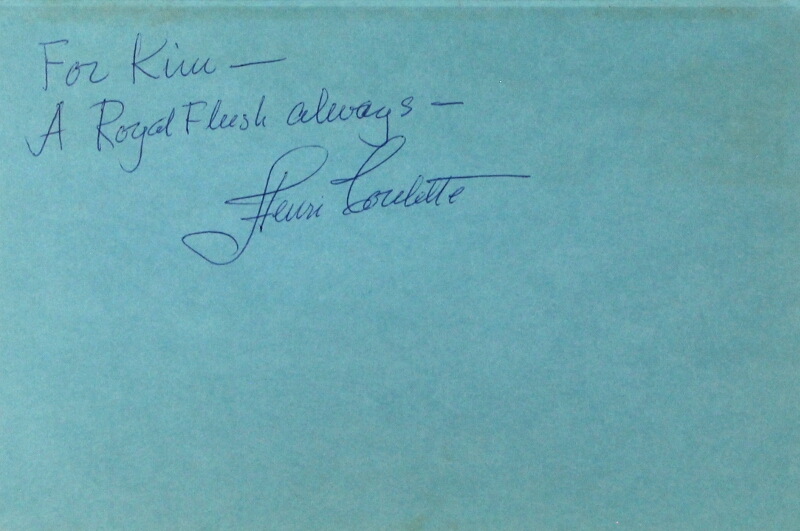 For Kim —
A Royal Flush always —
Henri Coulette